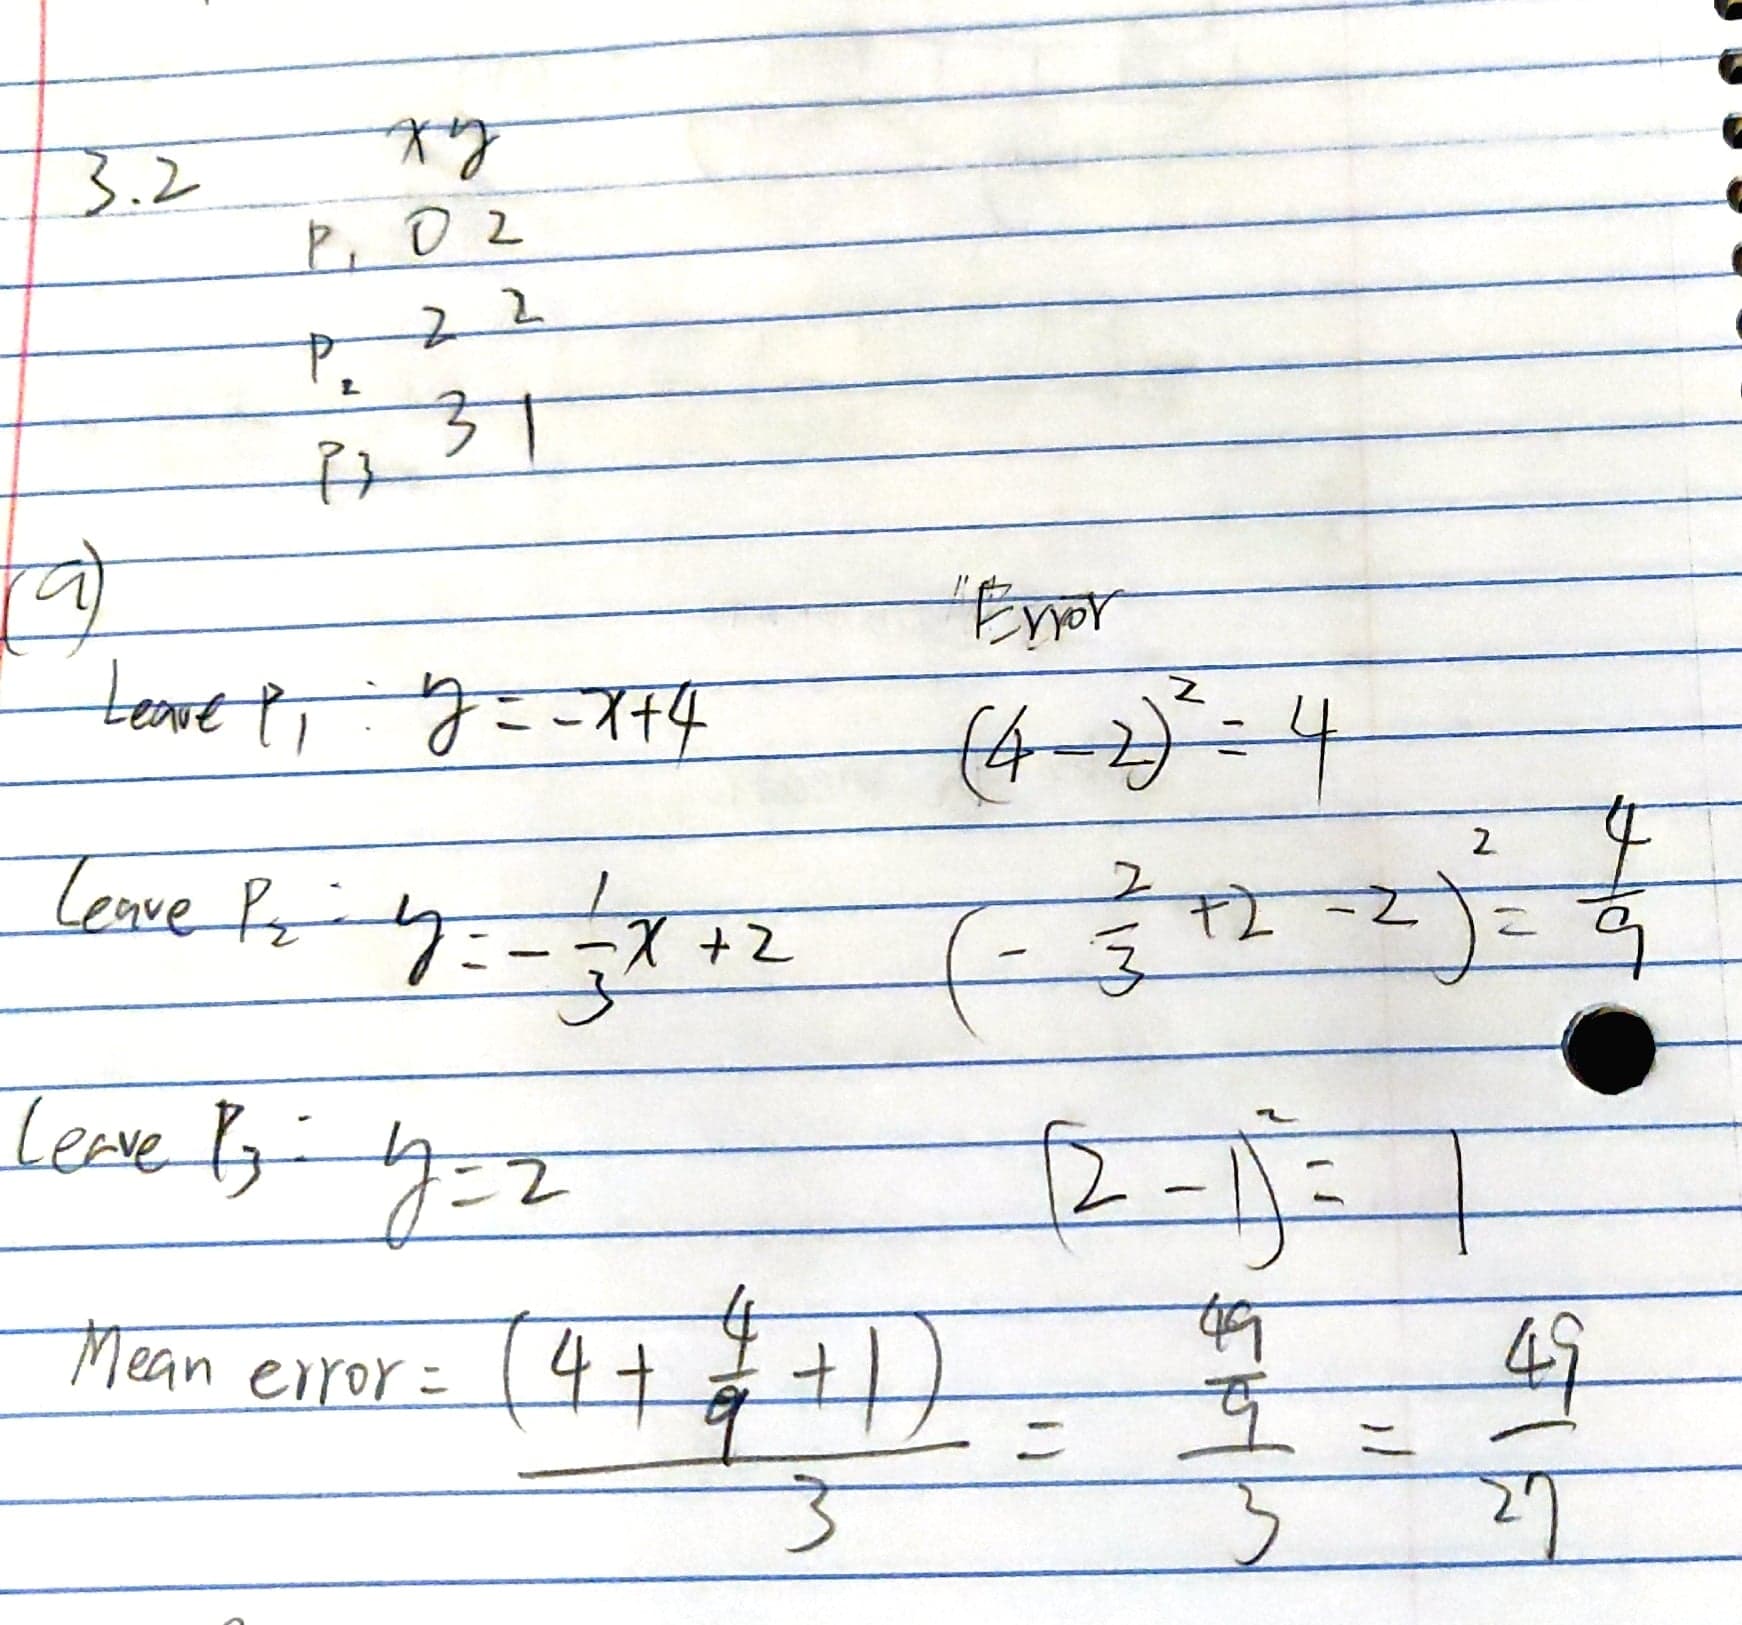 3.2 x y
P₁ 0 2
P₂ 2 2
P3 3 1
(a)
"Error
Leave P₁ : y = -x+4 (4-2)² = 4
Leave P₂ : y = -1/3 x + 2 (-2/3 +2 -2)² = 4/9
Leave P₃ : y = 2 (2-1)² = 1
Mean error = (4 + 4/9 + 1)/3 = (49/9)/3 = 49/27